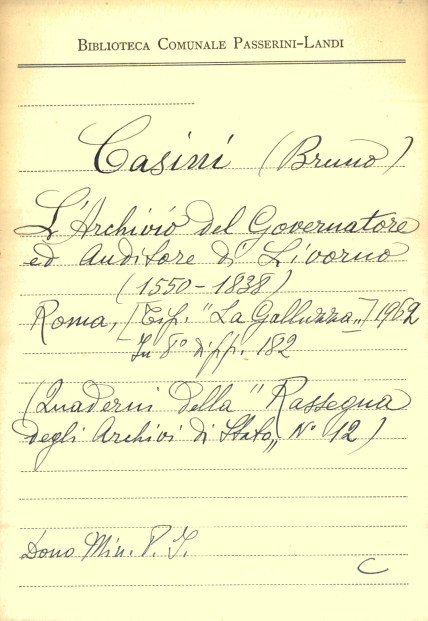 BIBLIOTECA COMUNALE PASSERINI-LANDI
Casini (Bruno)
L'Archivio del Governatore
ed Auditore di Livorno
(1550-1838)
Roma, [Tip. "La Galluzza„] 1962
In 8° di pp. 182
(Quaderni della "Rassegna
degli Archivi di Stato„ N° 12)
Dono Min. P. I.
C